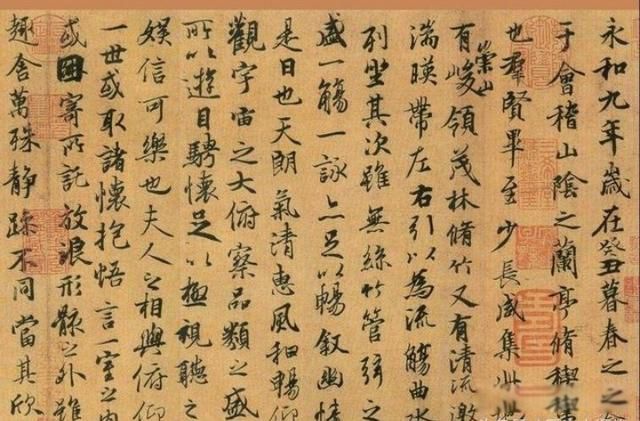 永和九年歲在癸丑暮春之
于會稽山陰之蘭亭脩稧事
也羣賢畢至少長咸集此地
有崇山峻領茂林脩竹又有清流激
湍暎帶左右引以為流觴曲水
列坐其次雖無絲竹管弦之
盛一觴一詠亦足以暢叙幽情
是日也天朗氣清惠風和暢仰
觀宇宙之大俯察品類之盛
所以遊目騁懷足以極視聽之
娛信可樂也夫人之相與俯仰
一世或取諸懷抱悟言一室之內
或因寄所託放浪形骸之外雖
趣舍萬殊靜躁不同當其欣